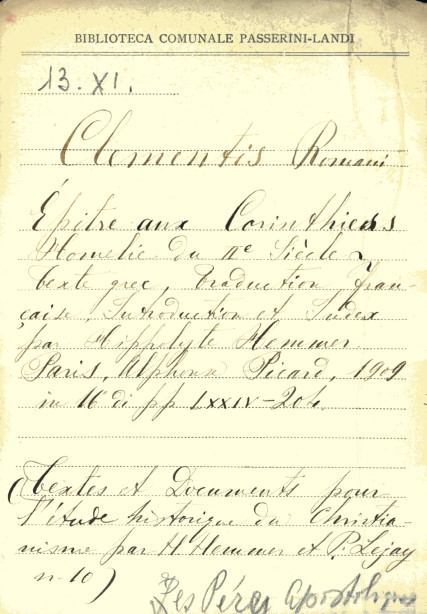 BIBLIOTECA COMUNALE PASSERINI-LANDI
13. XI.
Clementis Romani
Épître aux Corinthiens
Homelie du IIe Siècle
texte grec, traduction fran-
çaise, Introduction et Index
par Hippolyte Hemmer
Paris, Alphonse Picard, 1909
in 16° di pp LXXIV-204.
(Textes et Documents pour
l'étude historique du Christia-
nisme par H. Hemmer et P. Lejay
n. 10)
Les Pères apostoliques